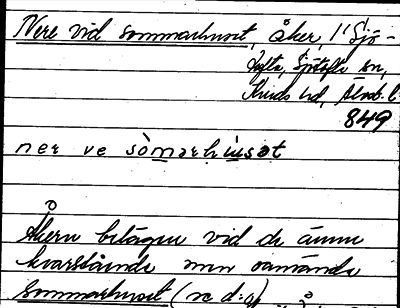 Nere vid sommarhuset, åker, 1/1 Sjö-
tofta, Sjötofta sn,
Kinds hd, Älvsb. l.
849
ner ve sòmarhusat
Åkern belägen vid de ännu
kvarstående men oanvända
sommarhuset (se d:o)